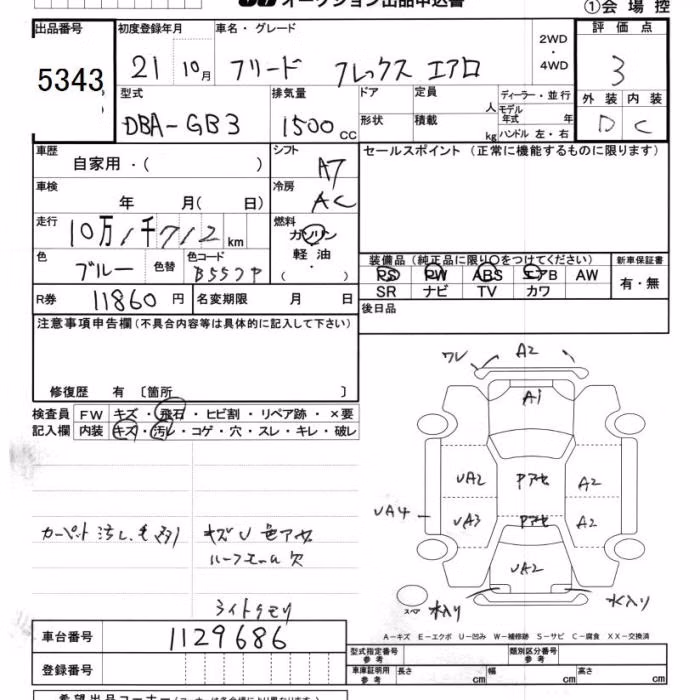 オークション出品申込書
①会場控
出品番号 5343
初度登録年月 21 10月
車名・グレード フリード フレックス エアロ
2WD・4WD
評価点 3
外装 D 内装 C
型式 DBA-GB3
排気量 1500 cc
ドア 定員 人
形状 積載 kg
ディーラー・並行
モデル年式 年
ハンドル 左・右
車歴 自家用・( )
シフト A7
セールスポイント(正常に機能するものに限ります)
車検 年 月( 日)
冷房 AC
走行 10万1千712 km
燃料 ガソリン 軽油・( )
色 ブルー 色替 色コード B557P
装備品(純正品に限り○をつけてください)
PS PW ABS エアB AW
SR ナビ TV カワ
新車保証書 有・無
R券 11860 円 名変期限 月 日
後日品
注意事項申告欄(不具合内容等は具体的に記入して下さい)
修復歴 有 〔箇所 〕
検査員記入欄
FW キズ・飛石・ヒビ割・リペア跡・×要
内装 キズ・汚レ・コゲ・穴・スレ・キレ・破レ
ワレ A2
A1
UA2 Pアセ A2
UA4 UA3 Pアセ A2
UA2
スペア 水入り 水入り
カーペット汚し
キズU色アセ
ルーフモール欠
ライトクモリ
A-キズ E-エクボ U-凹み W-補修跡 S-サビ C-腐食 XX-交換済
車台番号 1129686
登録番号
型式指定番号 参考 類別区分番号 参考
車庫証明用 参考 長さ cm 幅 cm 高さ cm
希望出品コーナー